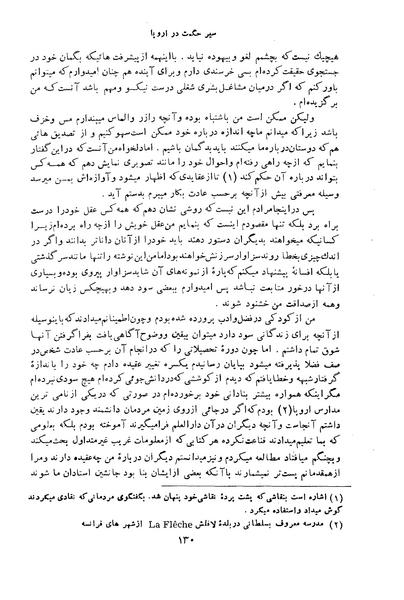 سیر حکمت در اروپا
هیچیك نیست که بچشمم لغو و بیهوده نیاید . با اینهمه از پیشرفت هائیکه بگمان خود در
جستجوی حقیقت کرده‌ام بسی خرسندی دارم و برای آینده هم چنان امیدوارم که میتوانم
باور کنم که اگر درمیان مشاغل بشری شغلی درست نیکو و مهم باشد آنست که من
برگزیده‌ام .
ولیکن ممکن است من باشتباه بوده و آنچه رازر و الماس میپندارم مس و خزف
باشد زیرا که میدانم ما چه اندازه درباره خود ممکن است سهو کنیم و از تصدیق هائی
هم که دوستان درباره ما میکنند باید بدگمان باشیم . اما دلخواه من آنست که در این گفتار
بنمایم که از چه راهی رفته‌ام و احوال خود را مانند تصویری نمایش دهم که همه کس
بتواند درباره آن حکم کند (۱) تا از عقایدی که اظهار میشود و آوازه‌اش بمن میرسد
وسیله معرفتی بیش از آنچه برحسب عادت بکار میبرم بدستم آید .
پس در اینجا مرادم این نیست که روشی نشان دهم که همه کس عقل خود را درست
راه برد بلکه تنها مقصودم اینست که بنمایم من عقل خویش را از چه راه برده‌ام زیرا
کسانیکه میخواهند بدیگران دستور دهند باید خود را از آنان داناتر بدانند و اگر در
اندك چیزی بخطا روند سزاوار سرزنش خواهند بود اما من این نوشته را تنها مانند سرگذشتی
یا بلکه افسانهٔ پیشنهاد میکنم که پارهٔ از نمونه‌های آن شاید سزاوار پیروی بوده و بسیاری
از آنها درخور متابعت نباشد پس امیدوارم ببعضی سود دهد و بهیچکس زیان نرساند
و همه از صداقت من خشنود شوند .
من از کودکی درفضل وادب پرورده شده بودم و چون اطمینانم میدادند که باینوسیله
از آنچه برای زندگانی سود دارد میتوان بیقین و وضوح آگاهی یافت بفرا گرفتن آنها
شوق تمام داشتم . اما چون دورهٔ تحصیلاتی را که در انجام آن برحسب عادت شخص در
صف فضلا پذیرفته میشود بپایان رسانیدم یکسره تغییر عقیده دادم چه خود را باندازهٔ
گرفتار شبهه و خطا یافتم که دیدم از کوششی که در دانش جوئی کرده‌ام هیچ سودی نبرده‌ام
مگر اینکه همواره بیشتر بنادانی خود برخورده‌ام در صورتی که دریکی از نامی ترین
مدارس اروپا (۲) بودم که اگر در جائی از روی زمین مردمان دانشمند وجود دارند یقین
داشتم آنجاست و آنچه دیگران در آن دارالعلم فرامیگیرند آموخته بودم بلکه بعلومی
که بما تعلیم میدادند قناعت نکرده هر کتابی که از معلومات غریب غیر متداول بحث میکند
و بچنگم میافتاد مطالعه میکردم و نیز میدانستم دیگران دربارهٔ من چه عقیده دارند و مرا
از همقدمانم پست تر نمیشمارند با آنکه بعضی از ایشان بنا بود جانشین استادان ما شوند
(۱) اشاره است بنقاشی که پشت پردهٔ نقاشی خود پنهان شد، بگفتگوی مردمانی که نقادی میکردند
گوش میداد و استفاده میکرد .
(۲) مدرسه معروف بسلطانی در بلدهٔ لافلش La Flêche از شهر های فرانسه
۱۳۰